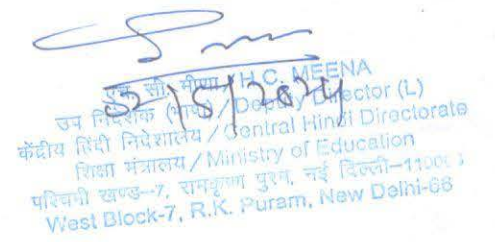 एच. सी. मीणा / H.C. MEENA
उप निदेशक (भाषा) / Deputy Director (L)
केंद्रीय हिंदी निदेशालय / Central Hindi Directorate
शिक्षा मंत्रालय / Ministry of Education
पश्चिमी खण्ड-7, रामकृष्ण पुरम, नई दिल्ली-110066
West Block-7, R.K. Puram, New Delhi-66